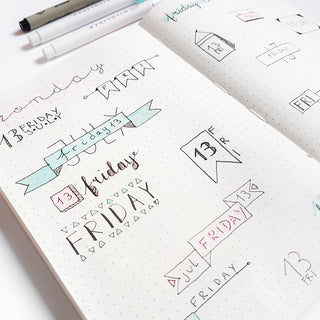 monday
13 FRIDAY
JULY
JULY
friday 13
13 friday
FRIDAY
13 FR
13
JUL FRIDAY
FRIDAY
friday
13
FRIDAY
FRI
13
FRI